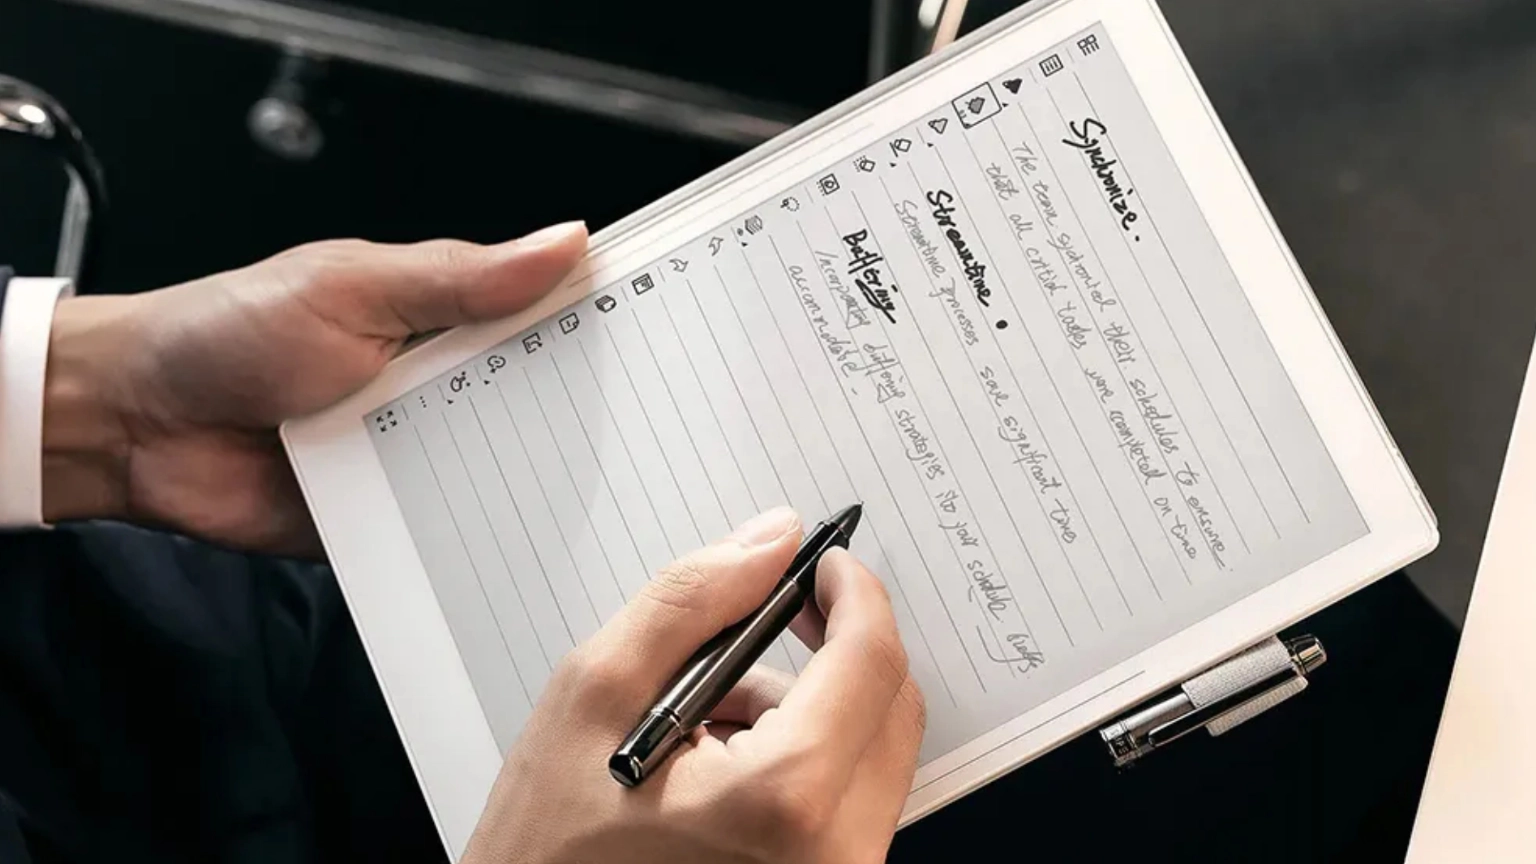 Synchronize.
The team sychronized their schedules to ensure
that all critical tasks were completed on time
Streamtime
Streamtime processes save significant time
Buffering
Incorporating buffering strategies into your schedule
accommodate.